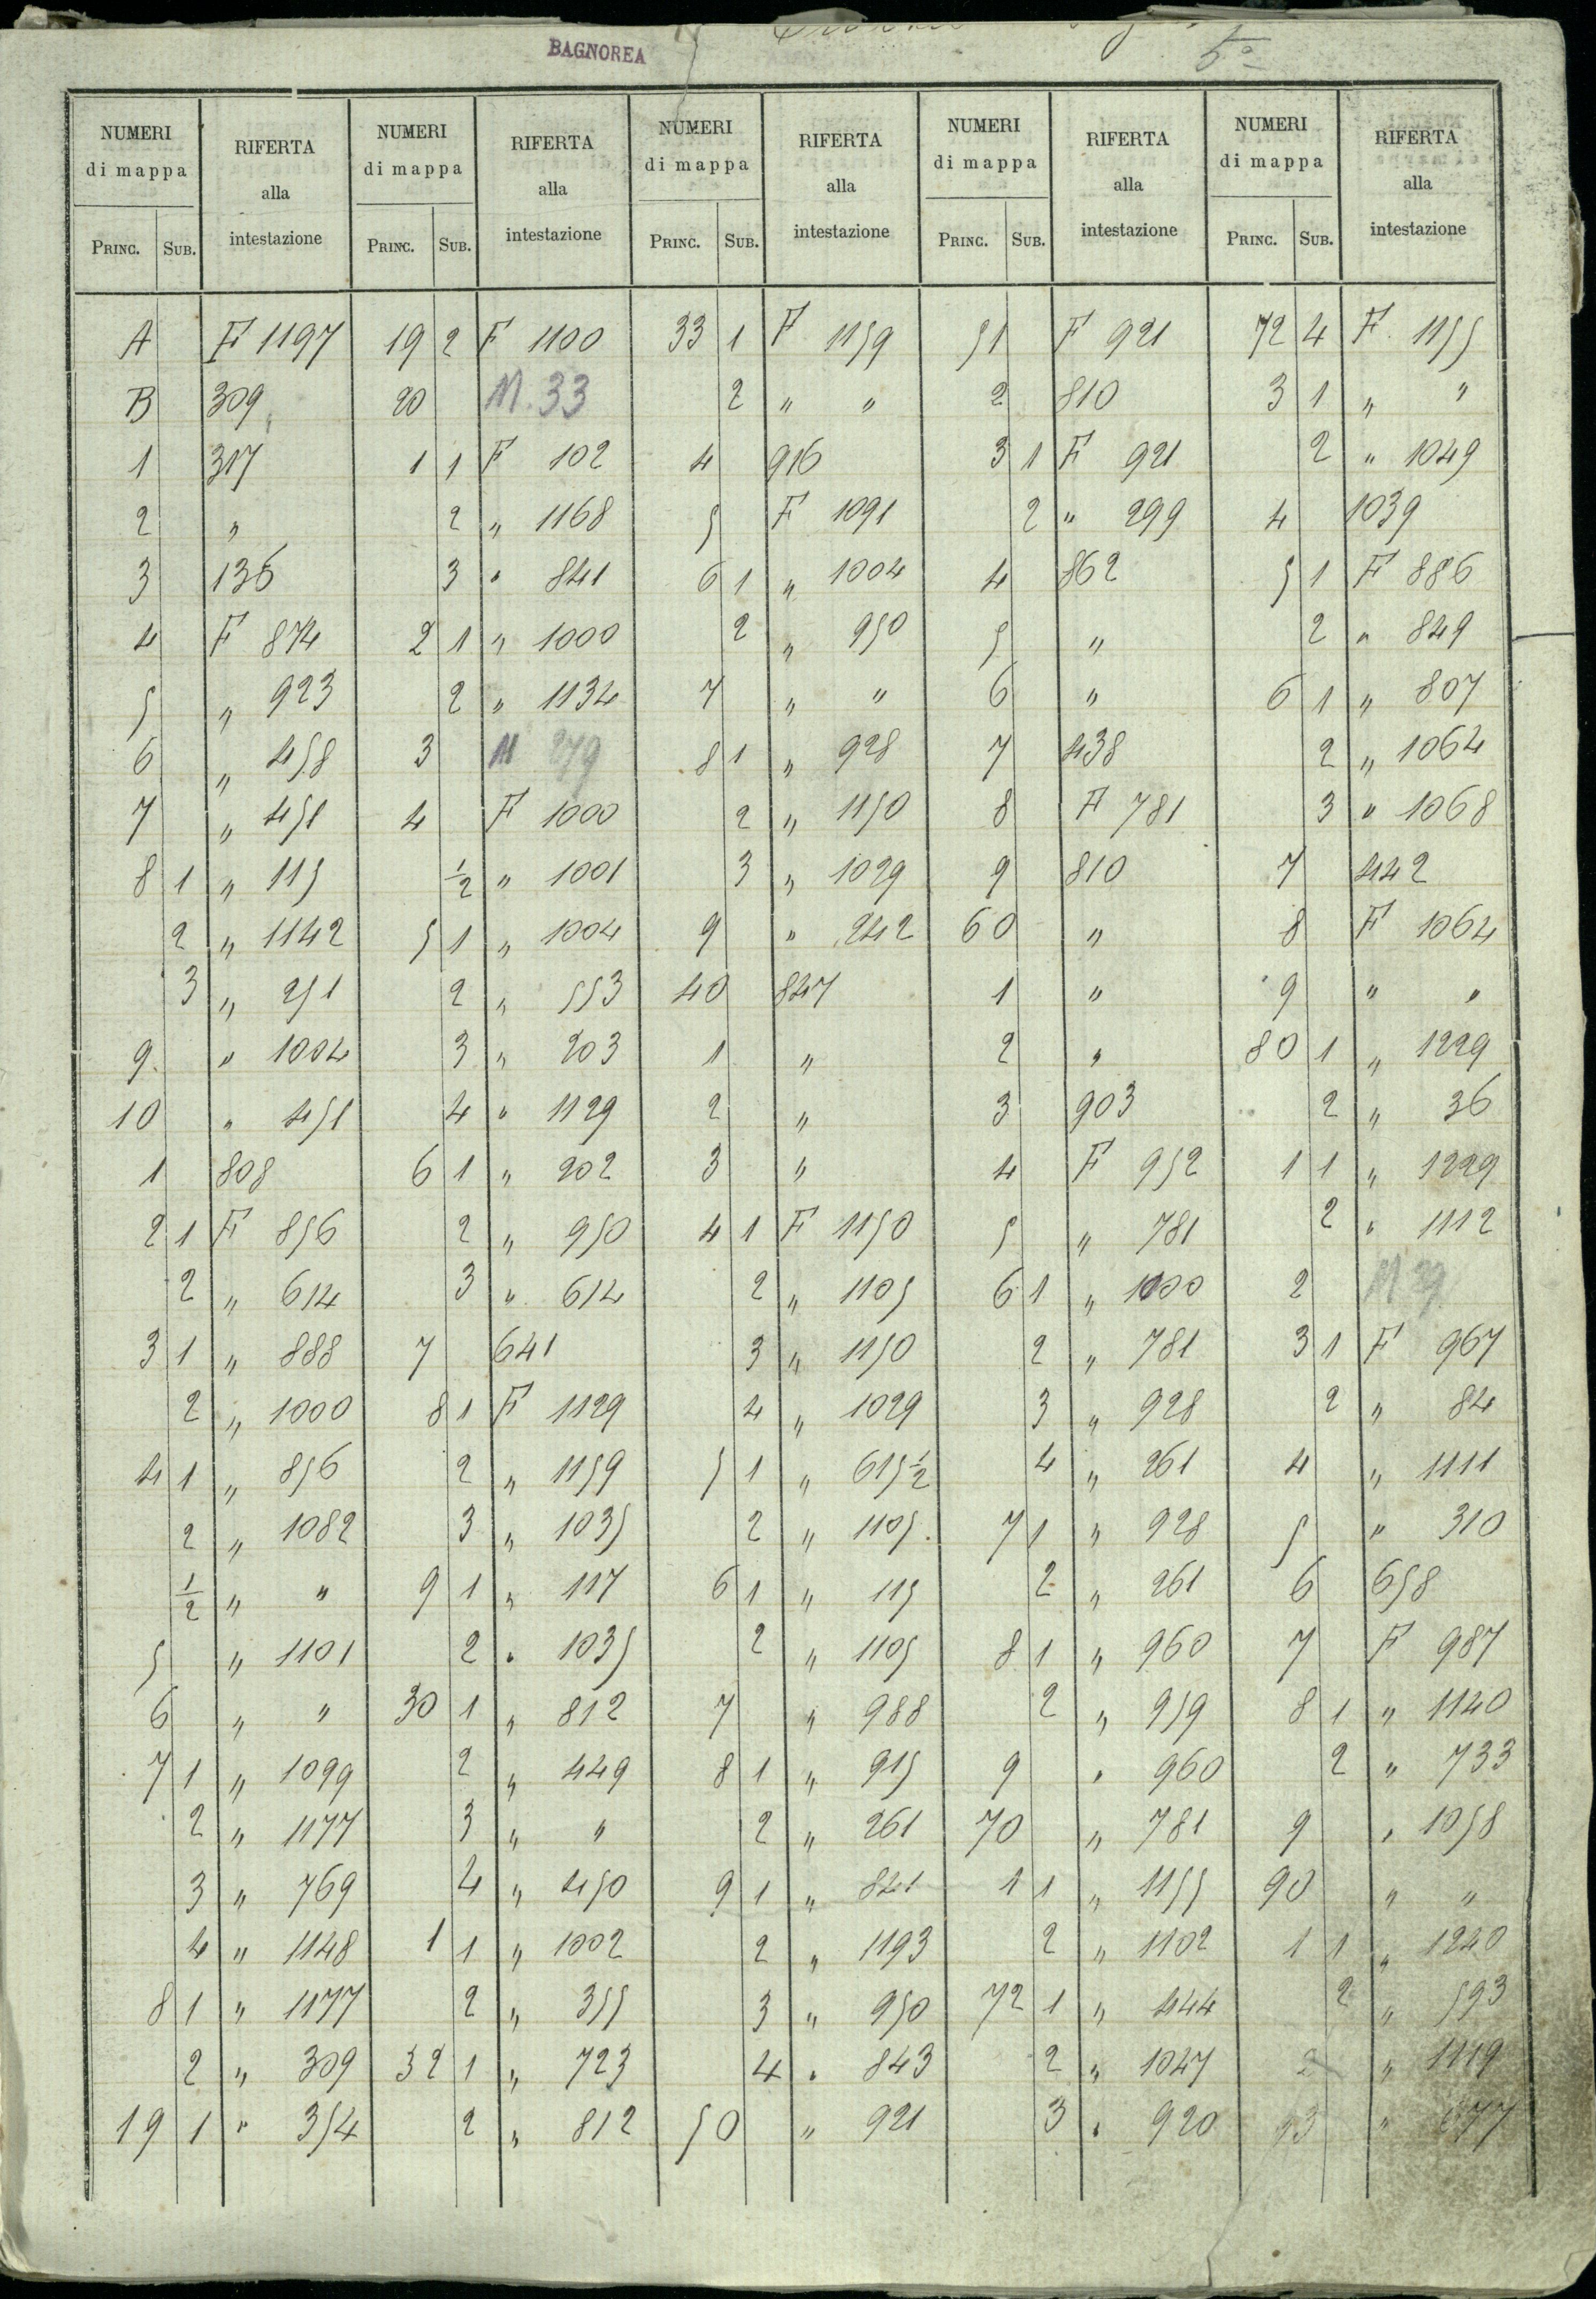 BAGNOREA
5ª
NUMERI di mappa RIFERTA alla intestazione NUMERI di mappa RIFERTA alla intestazione NUMERI di mappa RIFERTA alla intestazione NUMERI di mappa RIFERTA alla intestazione NUMERI di mappa RIFERTA alla intestazione
PRINC. SUB. PRINC. SUB. PRINC. SUB. PRINC. SUB. PRINC. SUB.
A F 1197 19 2 F 1100 33 1 F 1159 51 F 921 72 4 F. 1155
B 309 20 M. 33 2 " " 2 810 3 1 " "
1 317 1 1 F 102 4 916 3 1 F 921 2 " 1049
2 " 2 " 1168 5 F 1091 2 " 299 4 1039
3 136 3 " 841 6 1 " 1004 4 862 5 1 F 886
4 F 874 2 1 " 1000 2 " 950 5 " 2 " 849
5 " 923 2 " 1134 7 " " 6 " 6 1 " 807
6 " 458 3 M 279 8 1 " 928 7 438 2 " 1064
7 " 451 4 F 1000 2 " 1150 8 F 781 3 " 1068
8 1 " 115 1/2 " 1001 3 " 1029 9 810 7 442
2 " 1142 5 1 " 1004 9 " 242 60 " 8 F 1064
3 " 251 2 " 553 40 847 1 " 9 " "
9 " 1004 3 " 203 1 " 2 " 80 1 " 1229
10 " 451 4 " 1129 2 " 3 903 2 " 36
1 808 6 1 " 202 3 " 4 F 952 1 1 " 1229
2 1 F 856 2 " 950 4 1 F 1150 5 " 781 2 " 1112
2 " 614 3 " 614 2 " 1105 6 1 " 1000 2
3 1 " 888 7 641 3 " 1150 2 " 781 3 1 F 967
2 " 1000 8 1 F 1129 4 " 1029 3 " 928 2 " 84
4 1 " 856 2 " 1159 5 1 " 615 1/2 4 " 261 4 " 1111
2 " 1082 3 " 1035 2 " 1105. 7 1 " 928 5 " 310
1/2 " " 9 1 " 117 6 1 " 115 2 " 261 6 658
5 " 1101 2 " 1035 2 " 1105 8 1 " 960 7 F 987
6 " " 30 1 " 812 7 " 988 2 " 959 8 1 " 1140
7 1 " 1099 2 " 449 8 1 " 915 9 " 960 2 " 733
2 " 1177 3 " " 2 " 261 70 " 781 9 " 1058
3 " 769 4 " 450 9 1 " 841 1 1 " 1155 90 " "
4 " 1148 1 1 " 1002 2 " 1193 2 " 1102 1 1 " 1240
8 1 " 1177 2 " 355 3 " 950 72 1 " 444 2 " 593
2 " 309 32 1 " 723 4 " 843 2 " 1047 2 " 1119
19 1 " 354 2 " 812 50 " 921 3 " 920 93 "